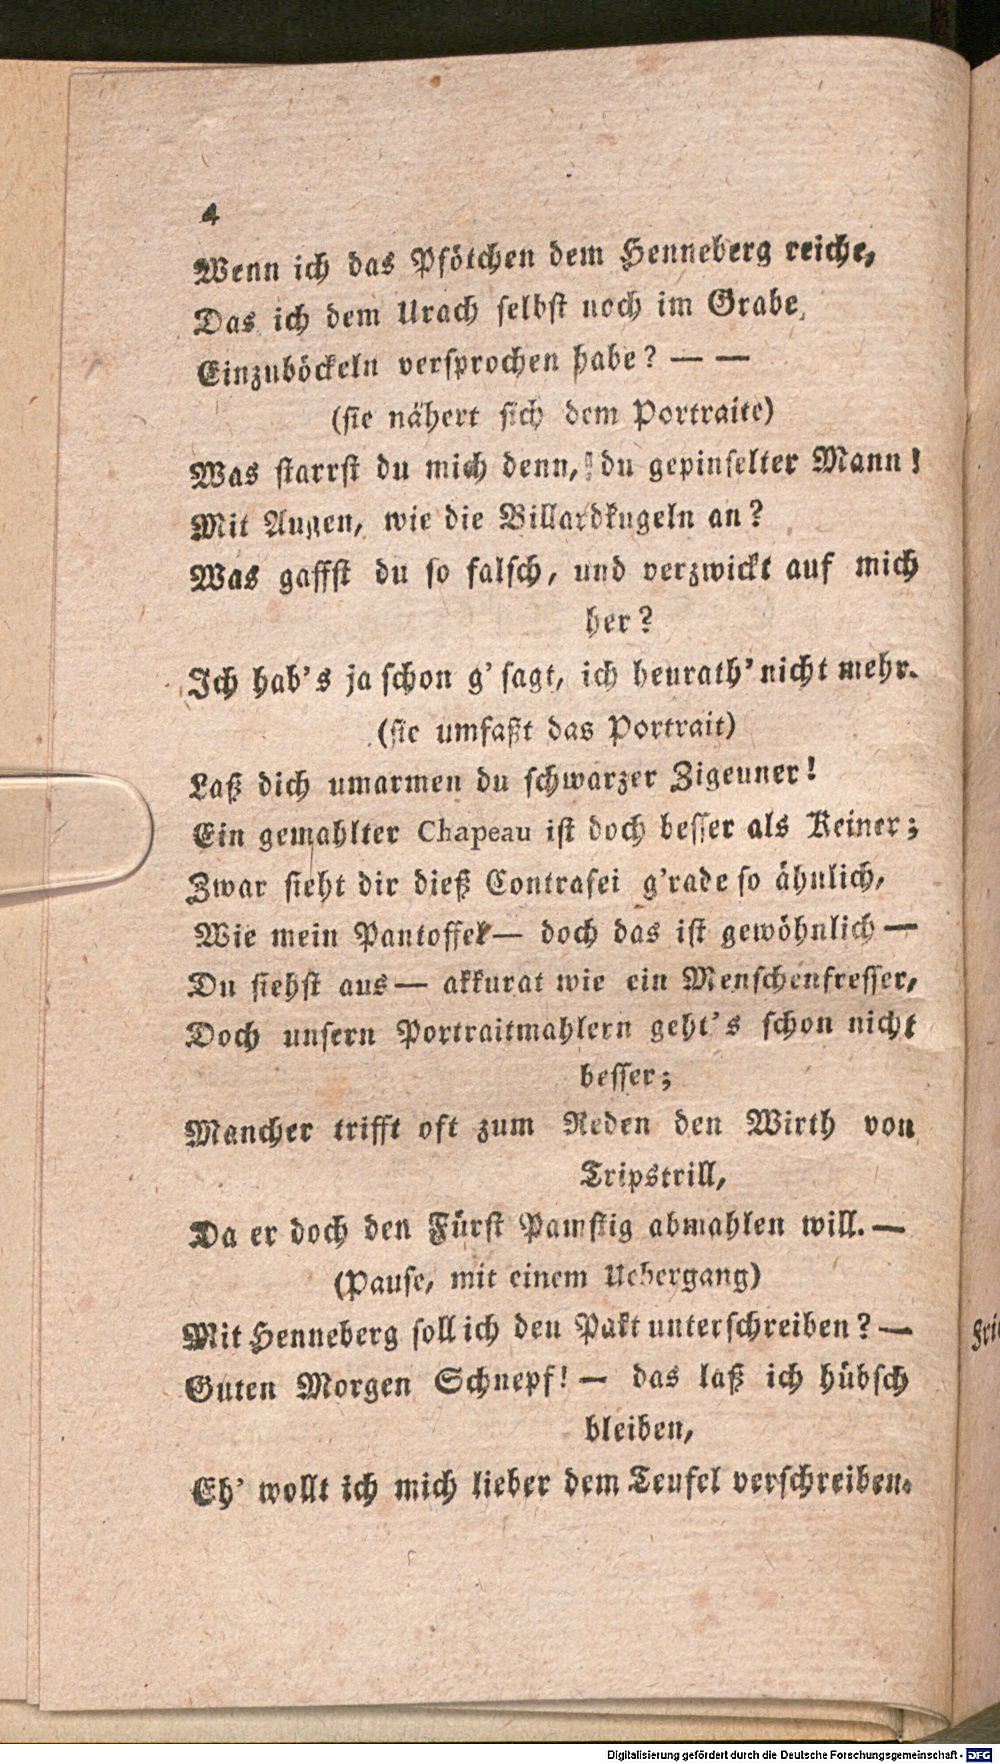 4
Wenn ich das Pfötchen dem Henneberg reiche,
Das ich dem Urach selbst noch im Grabe,
Einzuböckeln versprochen habe? — —
(sie nähert sich dem Portraite)
Was starrst du mich denn, du gepinselter Mann!
Mit Augen, wie die Billardkugeln an?
Was gaffst du so falsch, und verzwickt auf mich
her?
Ich hab's ja schon g'sagt, ich heurath' nicht mehr.
(sie umfaßt das Portrait)
Laß dich umarmen du schwarzer Zigeuner!
Ein gemahlter Chapeau ist doch besser als Keiner;
Zwar sieht dir dieß Contrafei g'rade so ähnlich,
Wie mein Pantoffel — doch das ist gewöhnlich —
Du siehst aus — akkurat wie ein Menschenfresser,
Doch unsern Portraitmahlern geht's schon nicht
besser;
Mancher trifft oft zum Reden den Wirth von
Tripstrill,
Da er doch den Fürst Pamstig abmahlen will. —
(Pause, mit einem Uebergang)
Mit Henneberg soll ich den Pakt unterschreiben? —
Guten Morgen Schnepf! — das laß ich hübsch
bleiben,
Eh' wollt ich mich lieber dem Teufel verschreiben.
Digitalisierung gefördert durch die Deutsche Forschungsgemeinschaft - DFG